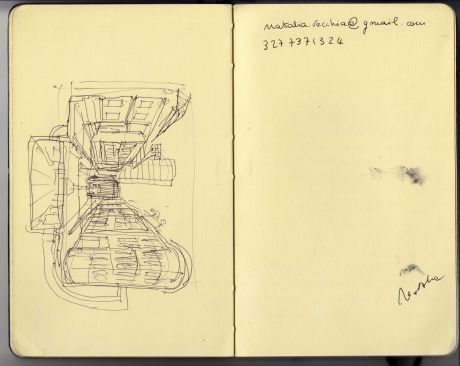 natalia.vecchia@gmail.com
3277371324